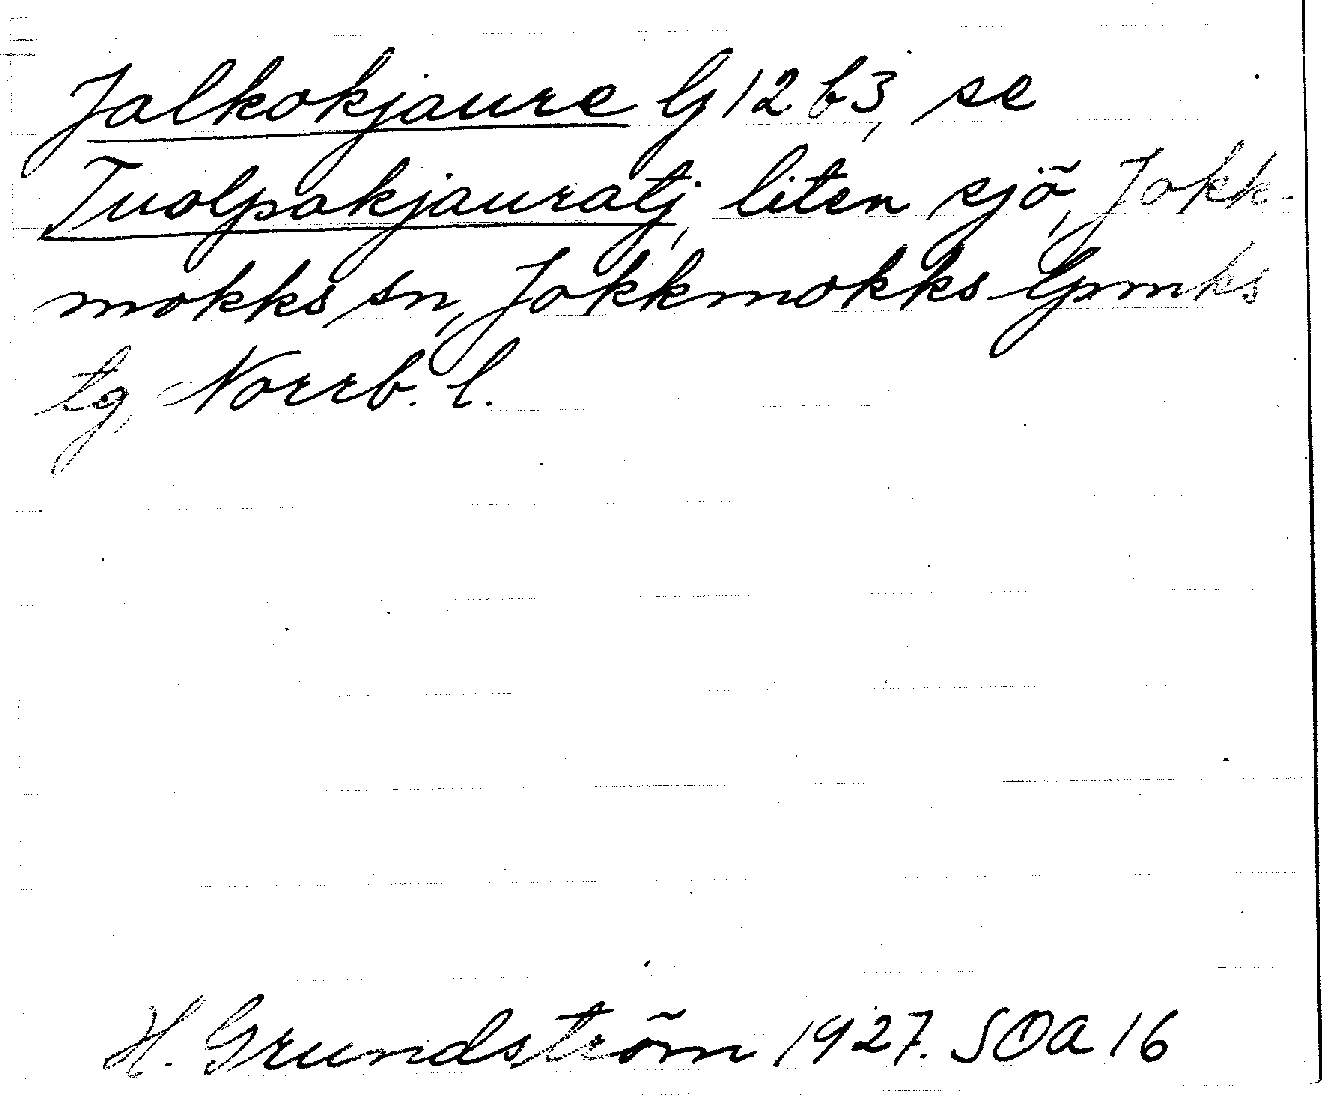 Jalkokjaure G 12 b3, se
Tuolpokjauratj, liten sjö, Jokk-
mokks sn, Jokkmokks lpmks
tg, Norrb. l.
H. Grundström 1927. SOA 16